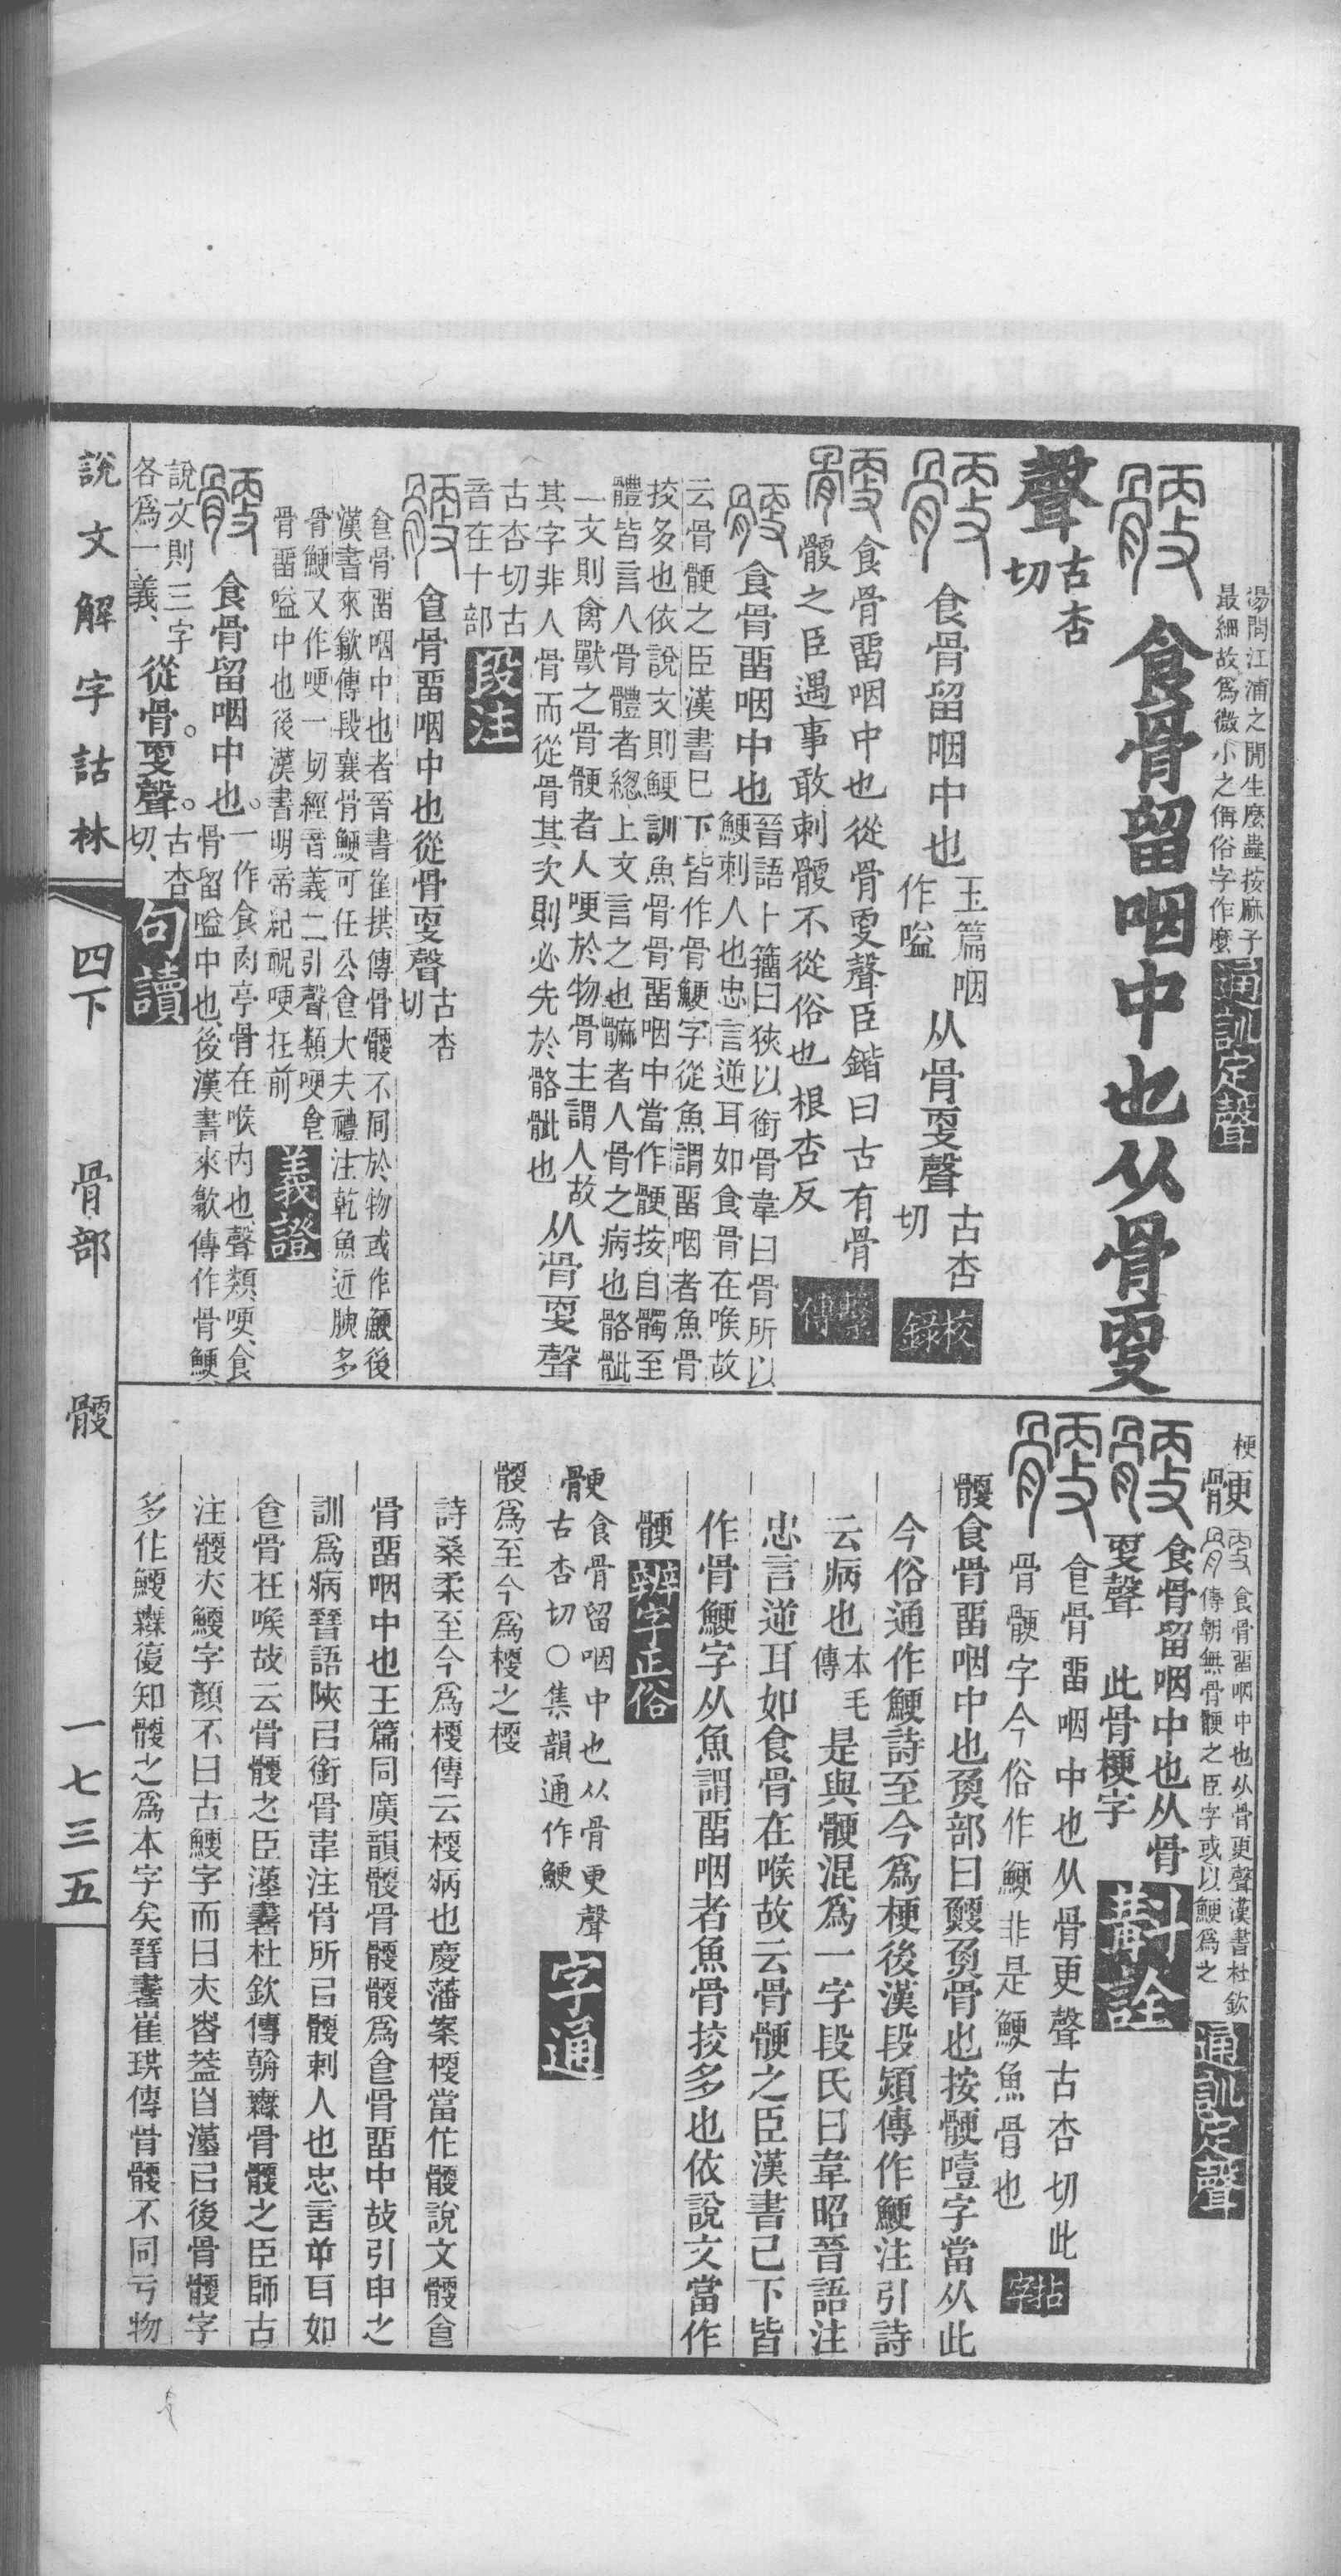 湯問江浦之閒生麼蟲按麻子
最細故爲微小之偁俗字作麼
通訓定聲
食骨留咽中也从骨㪅
聲
古杏
切
食骨留咽中也
玉篇咽
作嗌
从骨㪅聲
古杏
切
校錄
食骨畱咽中也從骨㪅聲臣鍇曰古有骨
骾之臣遇事敢刺骾不從俗也根杏反
繫傳
食骨畱咽中也
晉語卜籒曰狹以銜骨韋曰骨所以
鯁刺人也忠言逆耳如食骨在喉故
云骨骾之臣漢書巳下皆作骨鯁字從魚謂畱咽者魚骨
挍多也依說文則鯁訓魚骨骨畱咽中當作骾按自髑至
體皆言人骨體者總上文言之也䯢者人骨之病也骼骴
一文則禽獸之骨骾者人哽於物骨主謂人故
其字非人骨而從骨其次則必先於骼骴也
从骨㪅聲
古杏切古
音在十部
段注
食骨畱咽中也從骨㪅聲
古杏
切
食骨畱咽中也者晉書崔拱傳骨骾不同於物或作鯁後
漢書來歙傳段襄骨鯁可任公食大夫禮注乾魚近腴多
骨鯁又作哽一切經音義二引聲類哽食
骨畱嗌中也後漢書明帝紀祝哽在前
義證
食骨留咽中也。
一作食肉亭骨在喉内也、聲類、哽、食
骨留嗌中也、後漢書來歙傳作骨鯁、
說文則三字
各爲一義、
從骨。㪅聲。
古杏
切、
句讀
說文解字詁林
四下
骨部
骾
一七三五
梗
骾
食骨畱咽中也从骨更聲漢書杜欽
傳朝無骨骾之臣字或以鯁爲之
通訓定聲
食骨留咽中也从骨
㪅聲 此骨梗字
斠詮
食骨畱咽中也从骨更聲古杏切此
骨骾字今俗作鯁非是鯁魚骨也
拈字
骾食骨畱咽中也𩵋部曰鯁𩵋骨也按骾噎字當从此
今俗通作鯁詩至今爲梗後漢段熲傳作鯁注引詩
云病也
本毛
傳
是與骾混爲一字段氏曰韋昭晉語注
忠言逆耳如食骨在喉故云骨骾之臣漢書已下皆
作骨鯁字从魚謂畱咽者魚骨挍多也依說文當作
骾
辨字正俗
骾
食骨留咽中也从骨更聲
古杏切○集韻通作鯁
字通
骾爲至今爲梗之梗
詩桑柔至今爲梗傳云梗病也慶藩案梗當作骾說文骾食
骨畱咽中也玉篇同廣韻骾骨骾骾爲食骨畱中故引申之
訓爲病晉語陜㠯銜骨韋注骨所㠯骾刺人也忠言逆耳如
食骨在喉故云骨骾之臣漢書杜欽傳朝無骨骾之臣師古
注骾亦鯁字顏不曰古鯁字而曰亦者葢自漢㠯後骨骾字
多作鯁無復知骾之爲本字矣晉書崔珙傳骨骾不同亏物